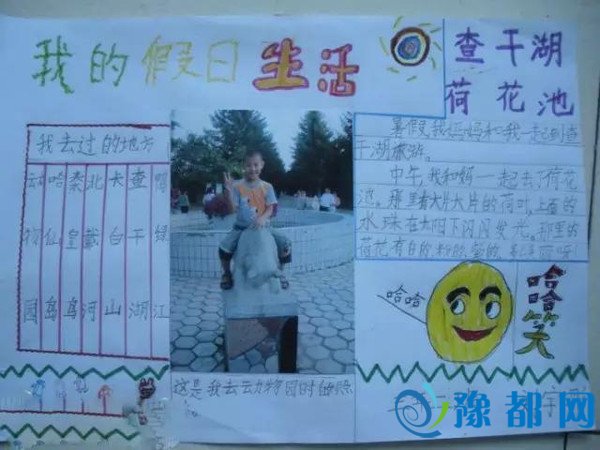 我的假日生活
查干湖
荷花池
我去过的地方
动物园
哈仙岛
秦皇岛
北戴河
长白山
查干湖
鸭绿江
这是我去动物园时的照
暑假,我妈妈和我一起到查
干湖旅游。
中午,我和妈一起去了荷花
池。那里有大片大片的荷叶,上面的
水珠在太阳下闪闪发光。那里的
荷花有白的粉的紫的,
哈哈
哈哈笑
豫都网